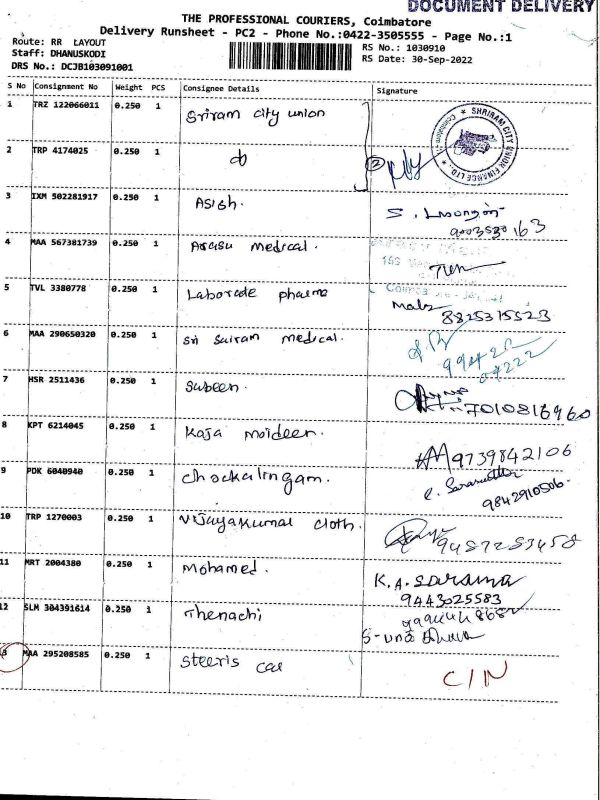 DOCUMENT DELIVERY
THE PROFESSIONAL COURIERS, Coimbatore
Delivery Runsheet - PC2 - Phone No.:0422-3505555 - Page No.:1
Route: RR LAYOUT
Staff: DHANUSKODI
DRS No.: DCJB103091001
RS No.: 1030910
RS Date: 30-Sep-2022
S No Consignment No Weight PCS Consignee Details Signature
1 TRZ 122066011 0.250 1 Sriram city union
SHRIRAM CITY UNION FINANCE LTD.,
2 TRP 4174025 0.250 1 do
2
3 IXM 502281917 0.250 1 Asish.
4 MAA 567381739 0.250 1 Arasu medical.
5 TVL 3380778 0.250 1 Laborade pharma
8825315523
6 MAA 290650320 0.250 1 Sri Sairam medical.
99422
04222
7 HSR 2511436 0.250 1 Subeen.
7010816960
8 KPT 6214045 0.250 1 Kaja moideen.
9739842106
9 PDK 6040940 0.250 1 Chockalingam.
9842910506.
10 TRP 1270003 0.250 1 Vijayakumal cloth.
9487283458
11 MRT 2004380 0.250 1 Mohamed.
K.A.
9443025583
12 SLM 304391614 0.250 1 Thenachi
13 MAA 295208585 0.250 1 Steeris car
C/N